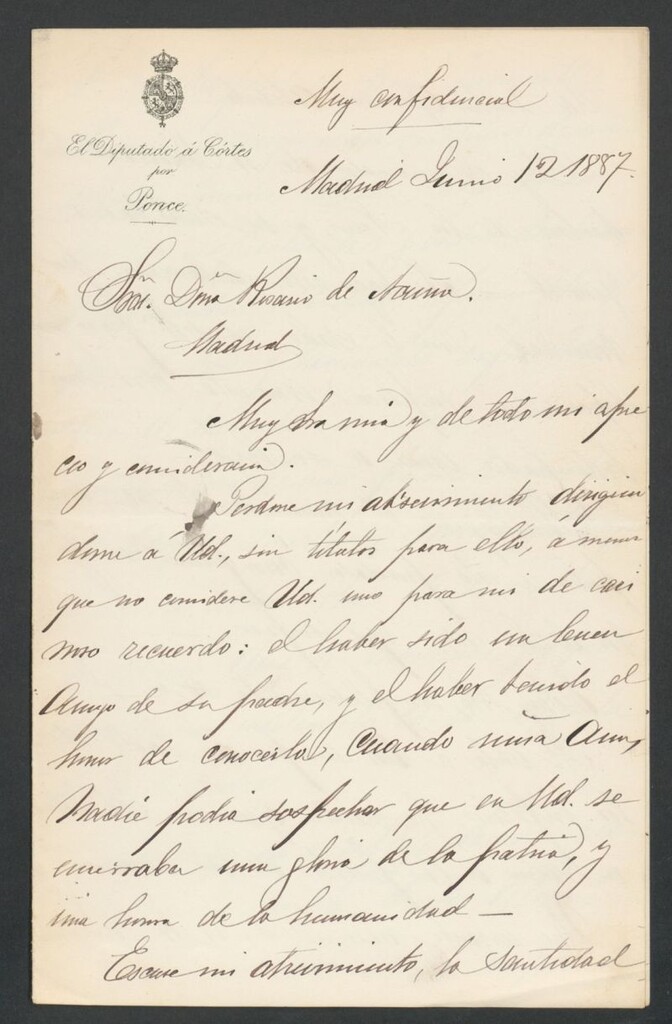 Muy confidencial
El Diputado á Córtes
por
Ponce.
Madrid Junio 12 1887.
Sra. Dña Rosario de Acuña.
Madrid
Muy Sra mia y de todo mi apre
cio y consideracion.
Perdone mi atrevimiento dirigien
dome á Ud., sin títulos para ello, á menos
que no considere Ud. uno para mi de cari
ñoso recuerdo: el haber sido un buen
Amigo de su padre, y el haber tenido el
honor de conocerla, Cuando niña Aun,
Nadie podia sospechar que en Ud. se
encerraba una gloria de la patria, y
una honra de la humanidad —
Escuse mi atrevimiento, la Santidad